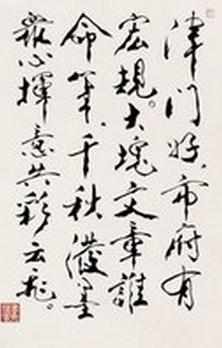 津门好，市府有
宏规。大块文章谁
命笔，千秋泼墨
众心挥。意共彩云飞。